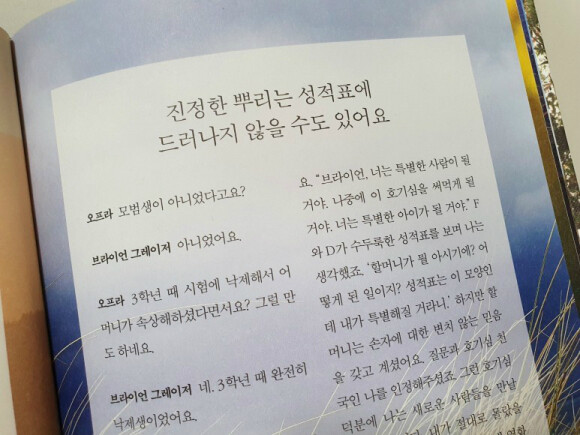 진정한 뿌리는 성적표에
드러나지 않을 수도 있어요
오프라 모범생이 아니었다고요?
브라이언 그레이저 아니었어요.
오프라 3학년 때 시험에 낙제해서 어
머니가 속상해하셨다면서요? 그럴 만
도 하네요.
브라이언 그레이저 네. 3학년 때 완전히
낙제생이었어요.
요. “브라이언, 너는 특별한 사람이 될
거야. 나중에 이 호기심을 써먹게 될
거야. 너는 특별한 아이가 될 거야.” F
와 D가 수두룩한 성적표를 보며 나는
생각했죠. ‘할머니가 뭘 아시기에? 어
떻게 된 일이지? 성적표는 이 모양인
데 내가 특별해질 거라니.’ 하지만 할
머니는 손자에 대한 변치 않는 믿음
을 갖고 계셨어요. 질문과 호기심 천
국인 나를 인정해주셨죠. 그런 호기심
덕분에 나는 새로운 사람들을 만날
내가 절대로 몰랐을